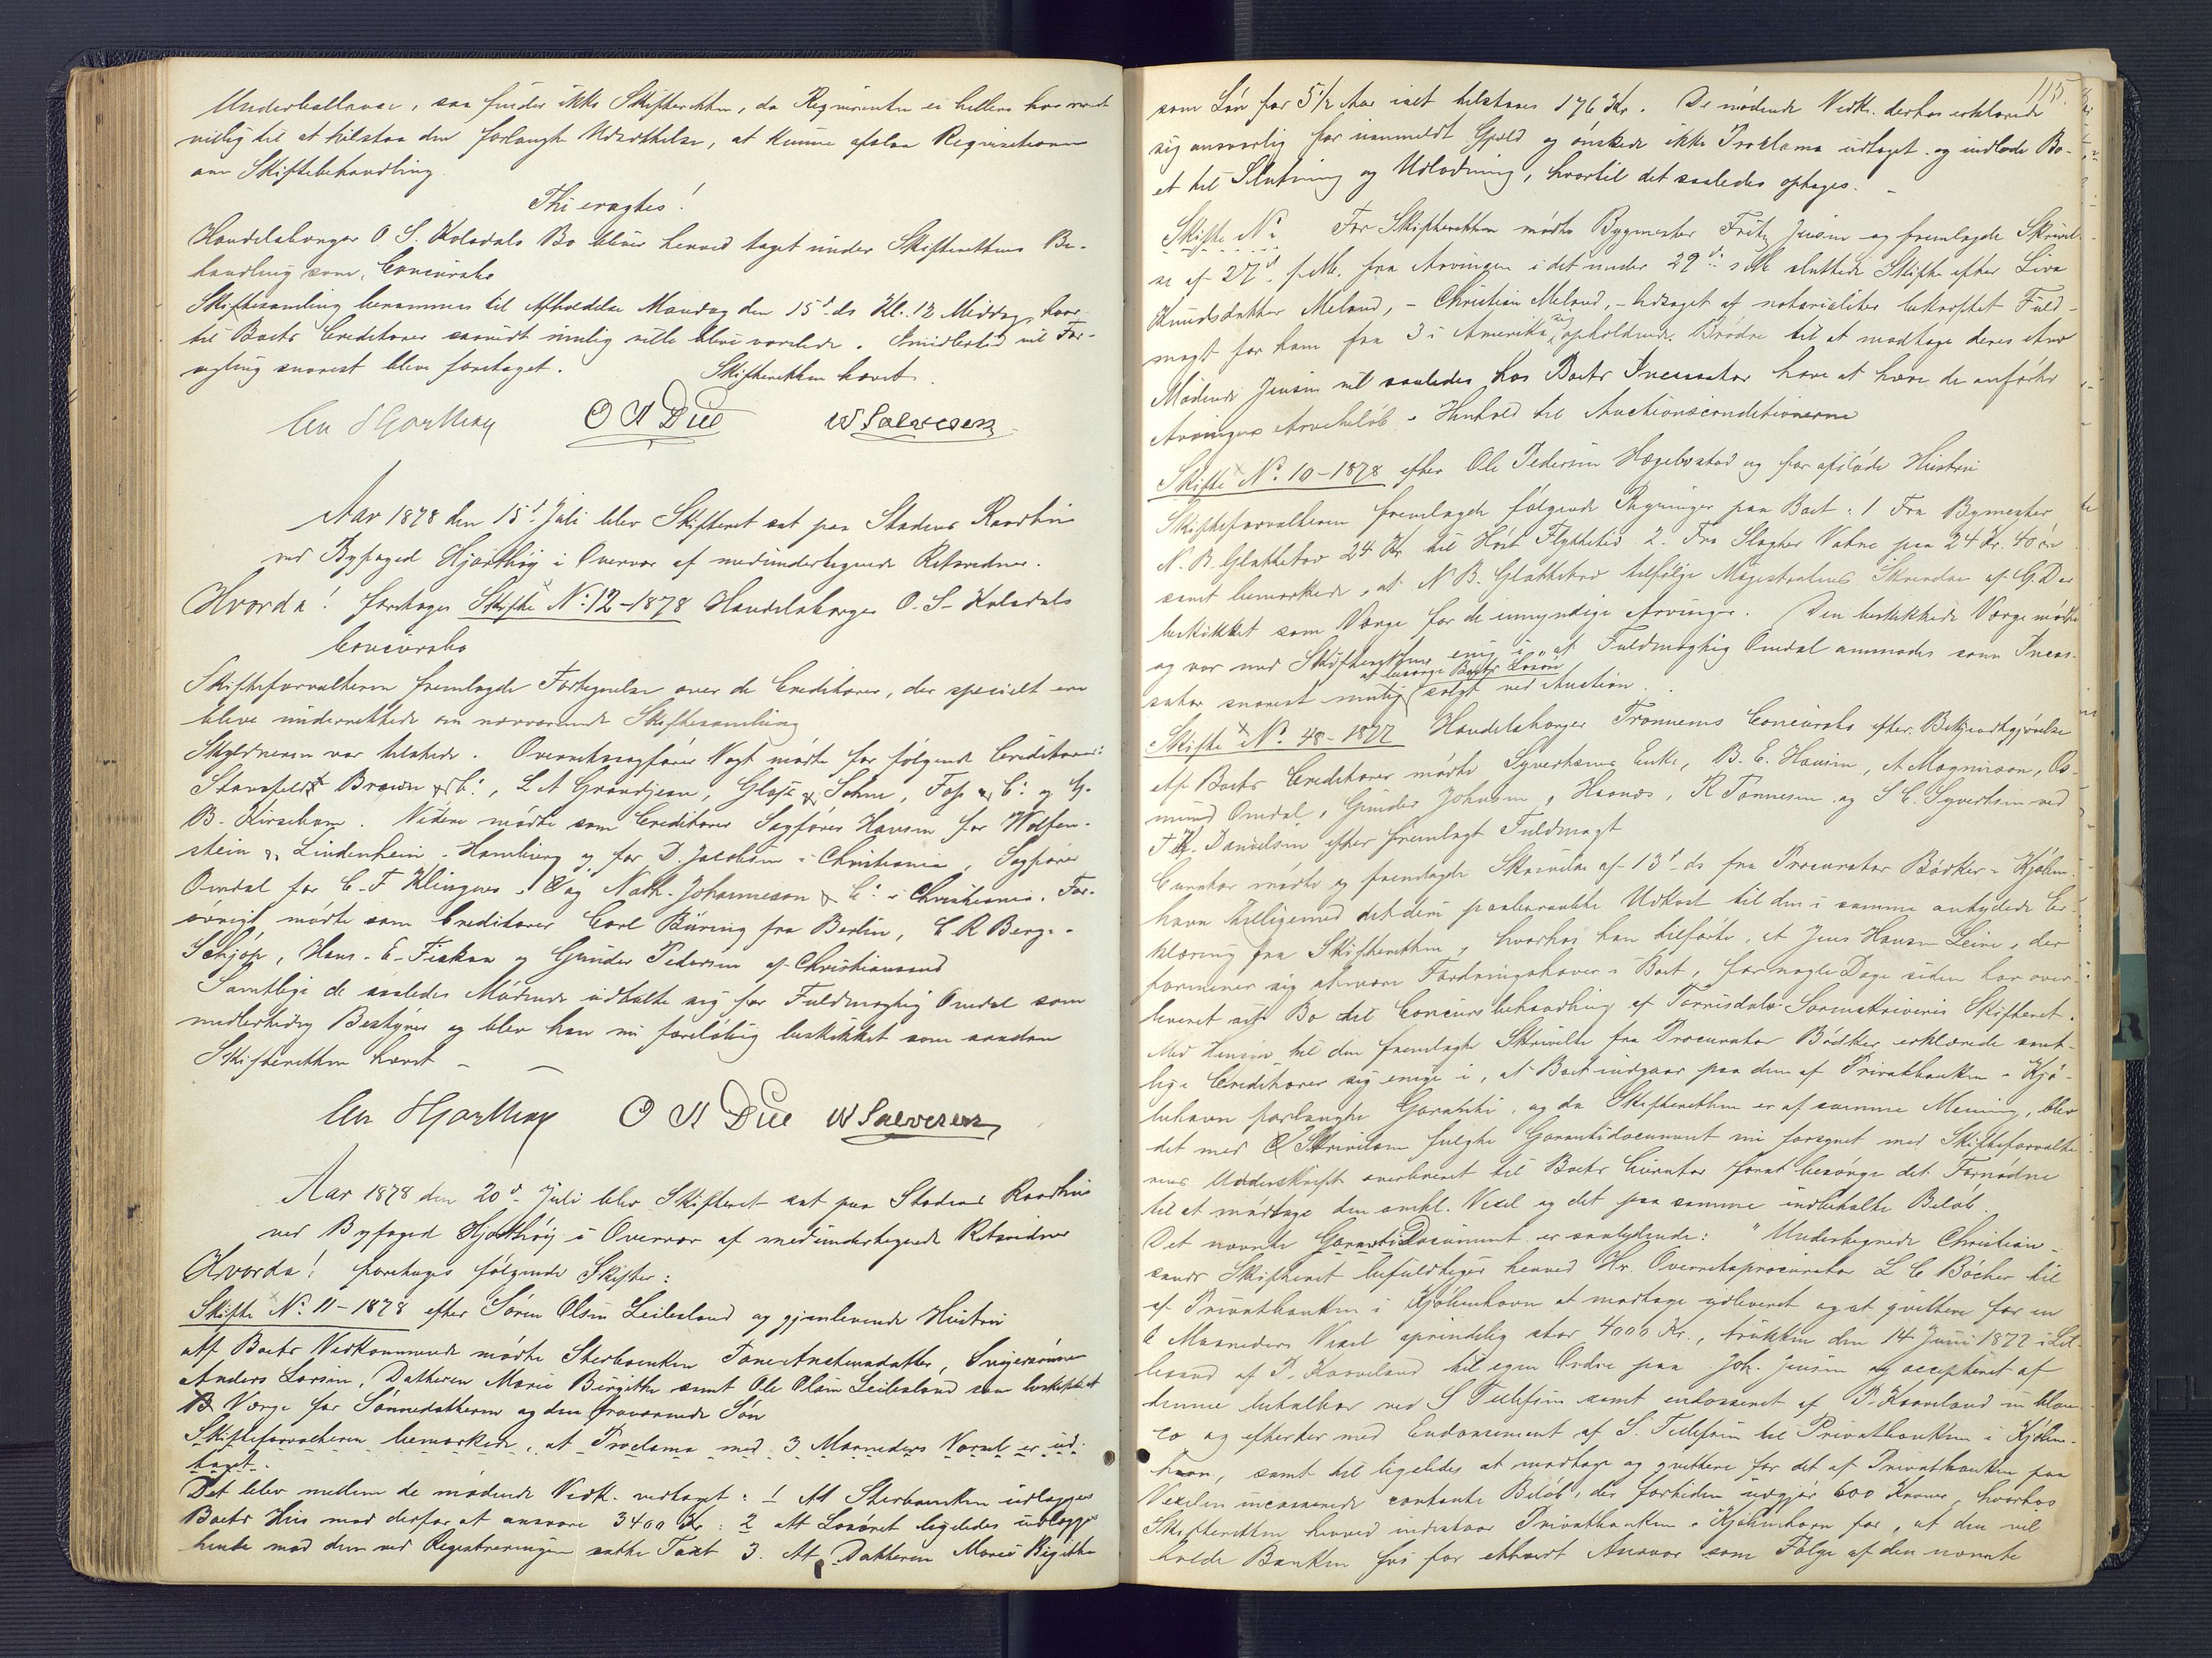 Underballance, saa finder ikke Skifteretten, da Reqvirenten ei hellere har været
villig til at tilstaa den forlangte Udsættelse, at kunne afslaa Reqvisitionen
om Skiftebehandling.
Thi eragtes!
Handelsborger O. S. Kolsdals Bo bliver herved taget under Skifterettens Be-
handling som Concursbo
Skiftesamling berammes til Afholdelse Mandag den 15d. ds Kl. 12 Middag, hvor-
til Boets Creditorer saavidt mulig ville blive varslede. Imidlertid vil For-
segling snarest blive foretaget.
Skifteretten hævet.
O A Due W Salvesen
Aar 1878 den 15d Juli blev Skifteret sat paa Stadens Raadhus
ved Byfoged Hjorthøy i Overvær af medundertegnede Retsvidner.
Hvorda! foretages Skifte No 12-1878 Handelsborger O. S. Kolsdals
Concursbo
Skifteforvalteren fremlagde Fortegnelse over de Creditorer, der specielt ere
bleve underrettede om nærværende Skiftesamling
Skyldneren var tilstede. Overretssagfører Vogt mødte for følgende Creditorer:
Stansfeldt Brown & Co, L A Grandjean, & Sohne, & Co og G.
B. Kirsebom. Videre mødte som Creditorer Sagfører Hansen for Wolfen-
stein & Lindenheim i Hamburg og for D. Jacobsen i Christiania, Sagfører
Omdal for C. F. Klingner og Nath. Johannesen & Co i Christiania. For-
øvrigt mødte som Creditorer Carl Büring fra Berlin, C R Berg,
Schjøp, Hans. E. og Gunder Pedersen af Christianssand
Samtlige de saaledes Mødende udtalte sig for Fuldmægtig Omdal som
midlertidig Bestyrer og blev han nu foreløbig beskikket som saadan
Skifteretten hævet
Hjorthøy O A Due W Salvesen
Aar 1878 den 20d. Juli blev Skifteret sat paa Stadens Raadhus
ved Byfoged Hjorthøy i Overvær af medundertegnede Retsvidner
Hvorda! foretages følgende Skifter:
Skifte No 11-1878 efter Søren Olsen Leilesland og gjenlevende Hustru
Af Boets Vedkommende mødte Sterboenken Tone Anstensdatter, Svigersønnen
Anders Larsen, Datteren Marie Birgitte samt Ole Olsen Leilesland som beskikket
Værge for Sønnedatteren og den fraværende Søn
Skifteforvalteren bemærkede, at Proclama med 3 Maaneders Varsel er ud-
taget.
Det blev mellem de mødende Vedk. vedtaget: 1 At Sterboenken udlægges
Boets Hus mod derfor at ansvare 3400 Kr: 2 At Løsøret ligeledes udlægges
hende mod den ved Registreringen satte Taxt 3. At Datteren Marie Birgitte
115.
som Løn for 5 1/2 Aar ialt tilstaaes 176 Kr. De mødende Vedk. derhos erklærede
sig ansvarlig for uanmeldt Gjæld og ønskede ikke Proclama udtaget og indlode Bo-
et til Slutning og Udlodning, hvortil det saaledes optages.
Skifte No For Skifteretten mødte Bygmester Fritz Jensen og fremlagde Skrivel-
se af 27d f. M. fra Arvingen i det under 29d s M sluttede Skifte efter Siva
Knudsdatter Meland, - Christian Meland, - ledsaget af notarialiter bekræftet Fuld-
magt for ham fra 3 i Amerika sig opholdende Brødre til at modtage deres Arv
Mødende Jensen vil saaledes hos Boets Incassator have at hæve de anførte
Arvingers Arvebeløb i Henhold til Auctionsconditionerne
Skifte No 10-1878 efter Ole Pedersen Hægebostad og før afdøde Hustru
Skifteforvalteren fremlagde følgende Regninger paa Boet: 1 Fra Bygmester
N. B. Glattetov 24 Kr til Høst Flyttetid 2. Fra Slagter Vatne paa 24 Kr. 40 øre
samt bemærkede, at N B. Glattetov tilfølge Magistratens Skrivelse af G. D. er
beskikket som Værge for de umyndige Arvinger. Den beskikkede Værge mødte
og var med Skifteretten enig i, at Fuldmægtig Omdal anmodes som Incas-
at besørge Boets Løsøre
sator snarest mulig solgt ved Auction.
Skifte No. 48-1877 Handelsborger Tronnems Concursbo efter Bekjendtgjørelse
Af Boets Creditorer mødte Syvertsens Enke, B. E. Hansen, A Magnusson, Os-
mund Omdal, Gunder Johnsen, Haanes, R Tønnesen og S C. Syvertsen ved
T K. Danielsen efter fremlagt Fuldmagt
Curator mødte og fremlagde Skrivelse af 13d ds fra Procurator Bødker i Kjøben-
havn tilligemed det deri paaberaabte Udkast til den i samme antydede Er-
klæring fra Skifteretten, hvorhos han tilførte, at Jens Hansen Leire, der
formener sig at være Fordringshaver i Boet, for nogle Dage siden har over-
leveret sit Bo til Concursbehandling af Torrisdals Sorenskriveris Skifteret.
Med Hensyn til den fremlagte Skrivelse fra Procurator Bødker erklærede samt-
lige Creditorer sig enige i, at Boet indgaar paa den af Privatbanken i Kjø-
behavn forlangte Garanti, og da Skifteretten er af samme Mening, blev
det med Skrivelsen fulgte Garantidocument nu forsynet med Skifteforvalte-
rens Underskrift overleveret til Boets Curator forat besørge det Fornødne
til at modtage den omhl. Vexel og det paa samme indbetalte Beløb.
Det nævnte Garanti Document er saalydende: "Undertegnede Christian-
sands Skifteret befuldtiger herved Hr. Overretsprocurator L C Böcher til
af Privatbanken i Kjøbenhavn at modtage udleveret og at qvittere for en
6 Maaneders Vexel oprindelig stor 4000 Kr., trukken den 14 Juni 1877 i Lil-
lesand af P. Kaaveland til egen Ordre paa Joh. Jensen og accepteret af
denne betalbar ved S Tellefsen samt endosseret af P. Kaaveland in blan-
co og efterher med Endossement af S. Tellefsen til Privatbanken i Kjøben-
havn, samt til ligeledes at modtage og qvittere for det af Privatbanken paa
Vexelen incasserede contante Beløb, der fortiden udgjør 600 Kroner, hvorhos
Skifteretten herved indestaar Privatbanken i Kjøbenhavn for, at den vil
holde Banken fri for ethvert Ansvar som Følge af den nævnte